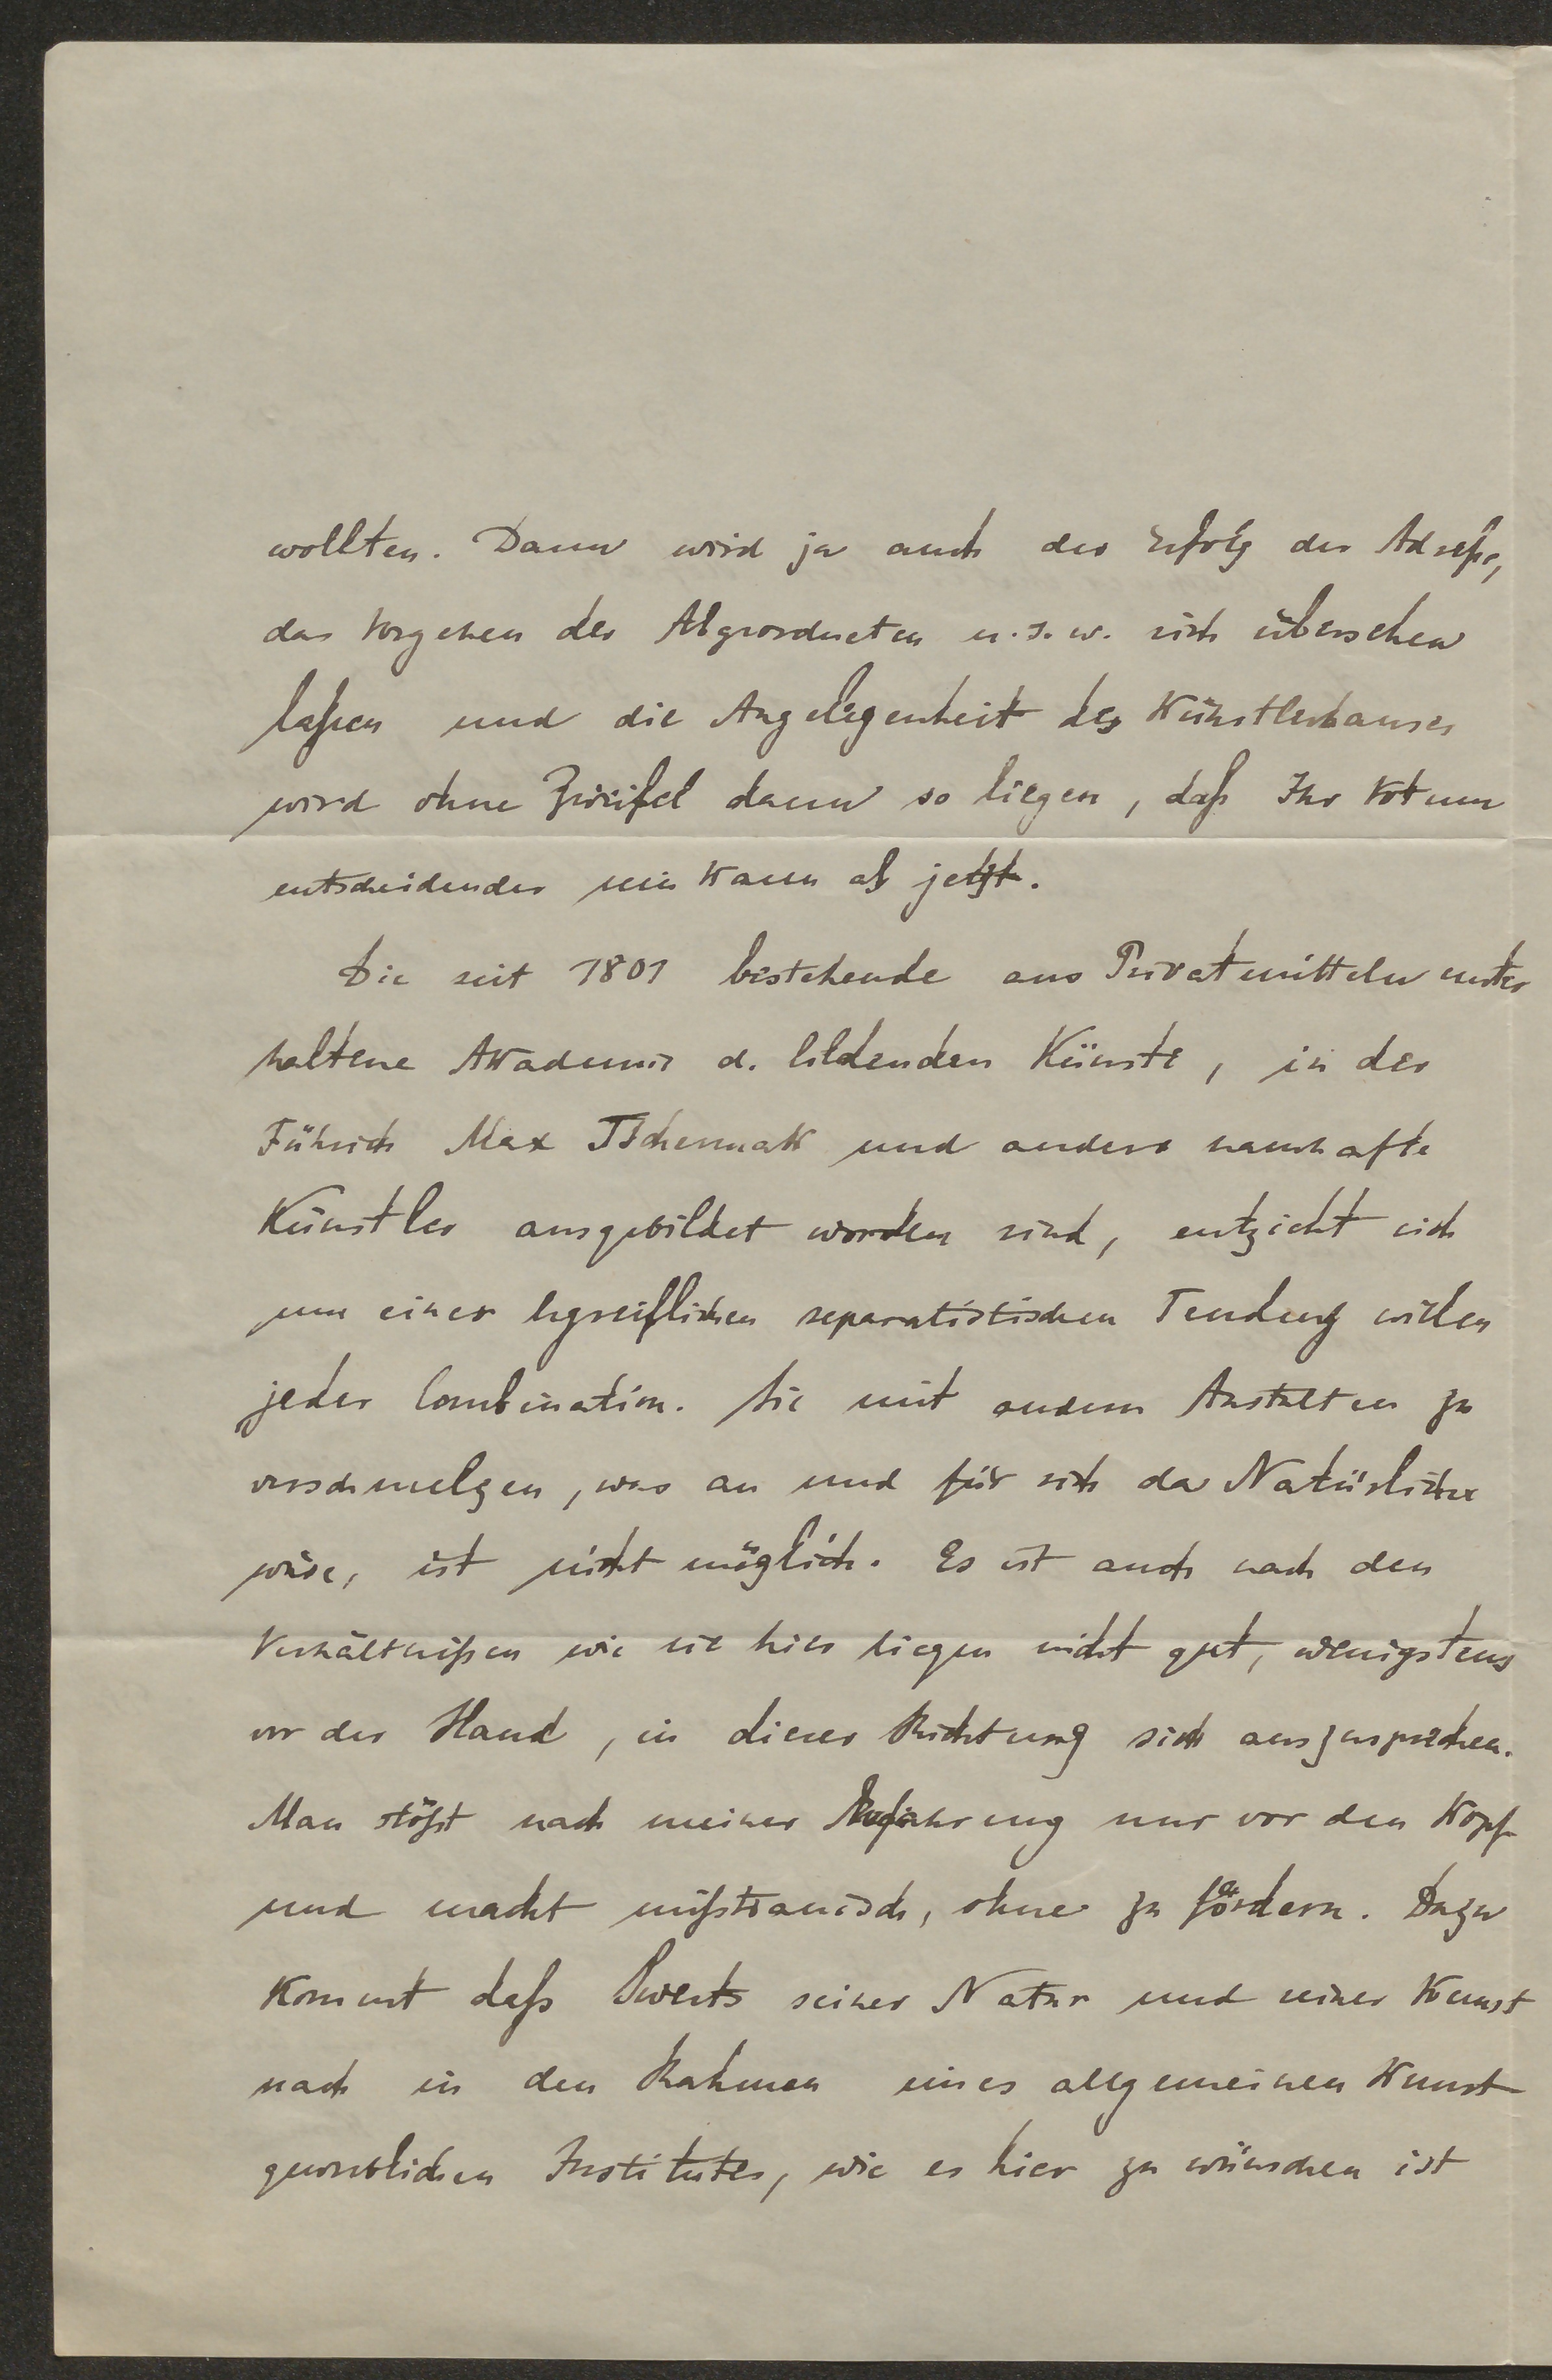 wollten. Dann wird ja auch der Erfolg der Adreße,
das Vorgehen der Abgeordneten u.s.w. sich übersehen
laßen und die Angelegenheit des Künstlerhauses
wird ohne Zweifel dann so liegen, daß Ihr Votum
entscheidender sein kann als jetzt.
Die seit 1801 bestehende aus Privatmitteln unter
haltene Akademie d. bildenden Künste, in der
Führich Max Tschermak und andere namhafte
Künstler ausgebildet worden sind, entzieht sich
um einer begreiflichen separatistischen Tendenz willen
jeder Combination. Sie mit andern Anstalten zu
verschmelzen, was an und für sich das Natürlichste
wäre, ist nicht möglich. Es ist auch nach den
Verhältnißen wie sie hier liegen nicht gut, wenigstens
vor der Hand, in dieser Richtung sich auszusprechen.
Man stößt nach meiner Erfahrung nur vor den Kopf
und macht mißtrauisch, ohne zu fördern. Dazu
kommt daß Swerts seiner Natur und seiner Kunst
nach in den Rahmen eines allgemeinen Kunst
gewerblichen Institutes, wie es hier zu wünschen ist